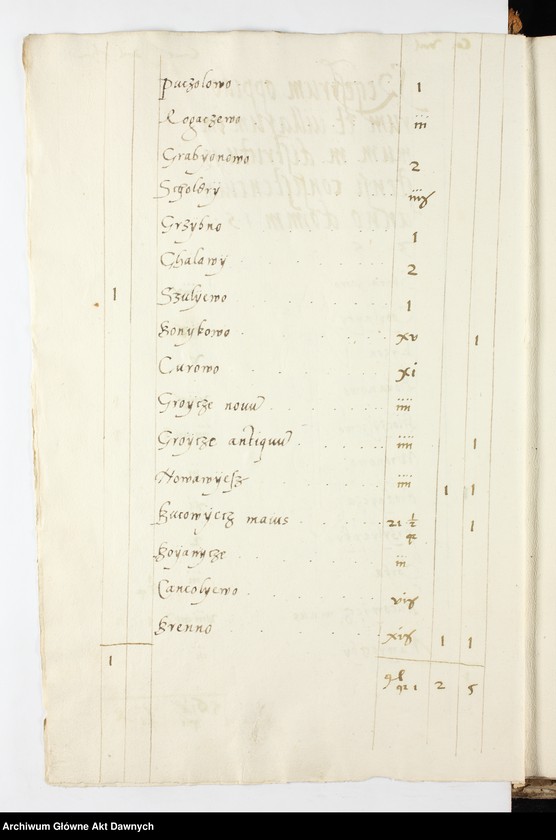 Puczolowo 1
Rogaczewo iii
Grabyonowo 2
Sczoldry iiiʝ
Grzybno 1
Chalawy 2
1 Szulyewo 1
Konykowo xv 1
Curowo xi
Groycze novu iiii
Groycze antiquu iiii 1
Nowawyesz iiii 1 1
Kucowyecz maius 21 1/2 1
Koyanycze iii
Cancolyewo viiʝ
Krenno xiiʝ 1 1
1 2 5
Archiwum Główne Akt Dawnych